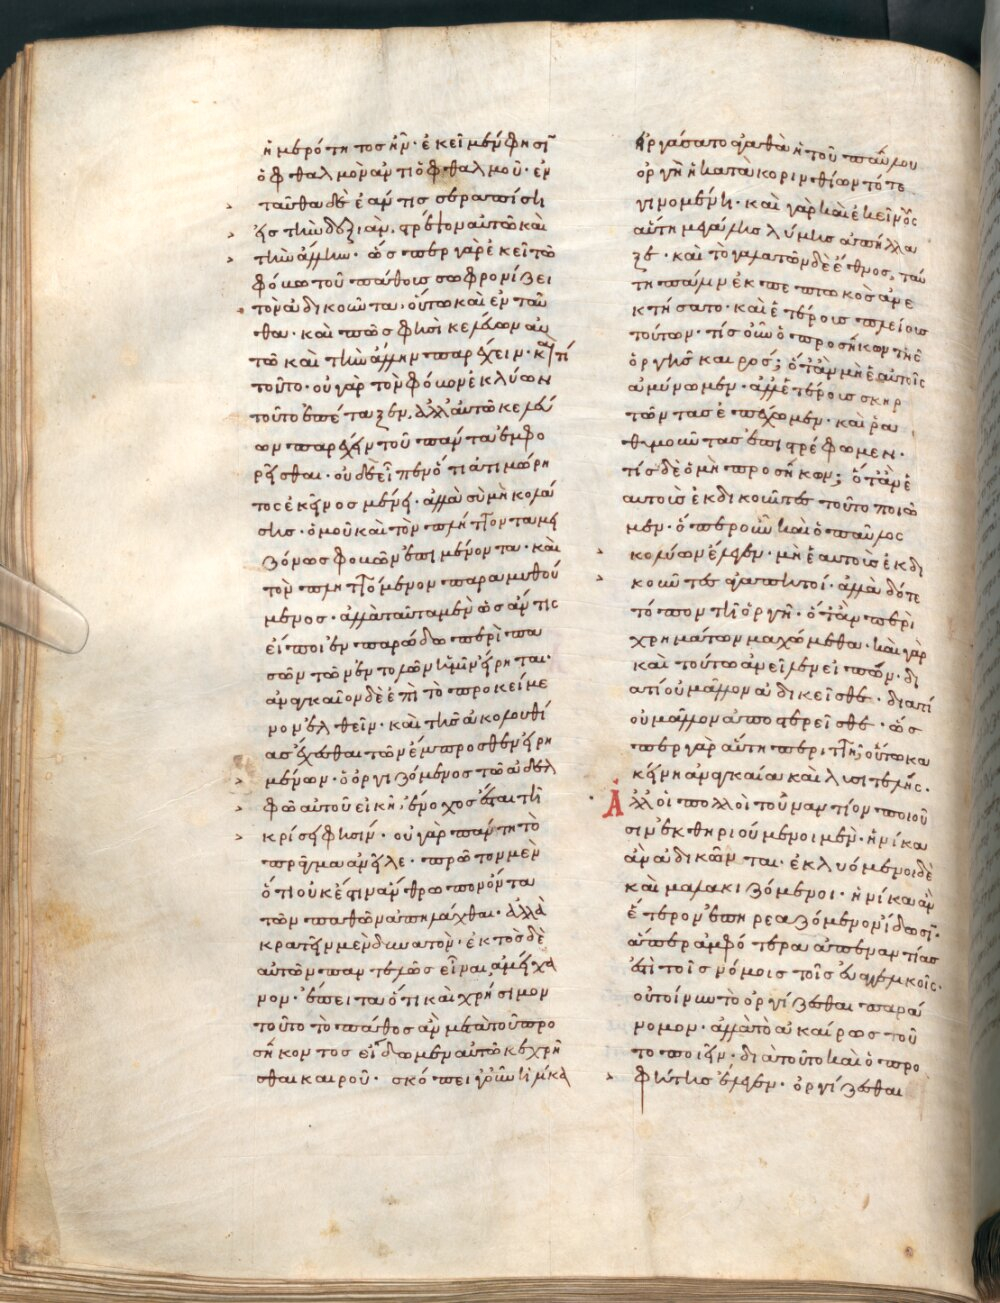 ἡμερότητος ἦν· ἐκεῖ μέν φησϊ
ὀφθαλμὸν ἀντὶ ὀφθαλμοῦ· ἐν
ταῦθα δὲ ἐάν τις σε ραπίσῃ
εἰς τὴν δεξιάν, στρέψον αὐτῷ καὶ
τὴν ἄλλην· ὥσπερ γὰρ ἐκεῖ τῷ
φόβω τοῦ πάθους σωφρονίζει
τὸν ἀδικοῦντα, οὕτω καὶ ἐν ταῦ
θα· καὶ πῶς φησὶ κελεύων αὐ
τῶ καὶ τὴν ἄλλην παρέχειν· κ(αὶ) τί
τοῦτο· οὐ γὰρ τὸν φόβον ἐκλύων
τοῦτο ἐπέταξεν, ἀλλ' αὐτῶ κελεύ
ων παρέχειν τοῦ πάντα ἐμφο
ρεῖσθαι· οὐδὲ εἶπεν ὅτι ἀτιμώρη
τος ἐκεῖνος μένει· ἀλλὰ σὺ μὴ κολά
σῃς· ὁμοῦ καὶ τὸν πλήττοντα μει
ζόνως φοβῶν ἐπιμένοντα· καὶ
τὸν πληττόμενον παραμυθού
μενος· ἀλλὰ ταῦτα μὲν ὡς ἄν τις
εἴποι ἐν παρόδω περὶ πα
σῶν τῶν ἐντολῶν ἡμῖν εἴρηται·
ἀναγκαῖον δὲ ἐπὶ τὸ προκείμε
νον ἐλθεῖν· καὶ τῆς ἀκολουθί
ας ἔχεσθαι τῶν ἔμπροσθεν εἰρη
μένων· ὁ ὀργιζόμενος τῶ ἀδελ
φῶ αὐτοῦ εἰκῆ, ἔνοχος ἔσται τῆ
κρίσει φησίν· οὐ γὰρ πάντη τὸ
πρᾶγμα ἀνεῖλε· πρῶτον μὲν
ὅτι οὐκ ἔστιν ἄνθρωπον ὄντα
τῶν παθῶν ἀπηλλάχθαι· ἀλλὰ
κρατεῖν μὲν δυνατὸν· ἐκτὸς δὲ
αὐτῶν παντελῶς εἶναι, ἀμήχα
νον· ἔπειτα ὅτι καὶ χρήσιμον
τοῦτο τὸ πάθος ἂν μετὰ τοῦ προ
σήκοντος εἰδῶμεν αὐτῶ κεχρῆ
σθαι καιροῦ· σκόπει γοῦν ἡλίκα
εἰργάσατο ἀγαθὰ ἡ τοῦ παύλου
ὀργὴ ἡ κατὰ κορινθίων τότε
γινομένη· καὶ γὰρ καὶ ἐκείνους
αὕτη μεγάλης λύμης ἀπήλλα
ξε· καὶ τὸ γαλατῶν δὲ ἔθνος, ταύ
τη πάλιν ἐκπεπτωκὸς ἀνε
κτήσατο· καὶ ἑτέρους πλείους
τούτων· τίς οὖν ὁ προσήκων τῆς
ὀργῆς καιρός; ὅταν μὴ ἑαυτοῖς
ἀμύνωμεν· ἀλλ' ἑτέρους σκιρ
τῶντας ἐπέχωμεν· καὶ ῥα
θυμοῦντας ἐπιστρέφωμεν·
τίς δὲ ὁ μὴ προσήκων; ὅταν ἑ
αυτοὺς ἐκδικοῦντες τοῦτο ποιῶ
μεν· ὅπερ οὖν καὶ ὁ παῦλος
κολύων ἔλεγεν· μὴ ἑαυτοὺς ἐκδι
κοῦντες ἀγαπητοί· ἀλλὰ δότε
τόπον τῆ ὀργῆ· ὅταν περὶ
χρημάτων μαχώμεθα· καὶ γὰρ
καὶ τοῦτο ἀνεῖλεν εἰπῶν· δι
ατί οὐ μᾶλλον ἀδικεῖσθε· διατί
οὐ μᾶλλον ἀποστερεῖσθε· ὥσ
περ γὰρ αὕτη περιττή, οὕτω κα
κείνη ἀναγκαία καὶ λυσιτελής·
Ἀλλ' οἱ πολλοὶ τοὐναντίον ποιοῦ
σιν ἐκθηριούμενοι μὲν· ἡνίκα
ἂν ἀδικῶνται· ἐκλυόμενοι δὲ
καὶ μαλακιζόμενοι· ἡνίκα ἂν
ἕτερον ἐπηρεαζόμενον ἴδωσϊ·
ἅπερ ἀμφότερα ἀπεναντίας
ἐστὶ τοῖς νόμοις τοῖς εὐαγγελικοῖς·
οὐ τοίνυν τὸ ὀργίζεσθαι παρά
νομον· ἀλλὰ τὸ ἀκαίρως τοῦ
το ποιεῖν· διὰ τοῦτο καὶ ὁ προ
φήτης ἔλεγεν· ὀργίζεσθαι